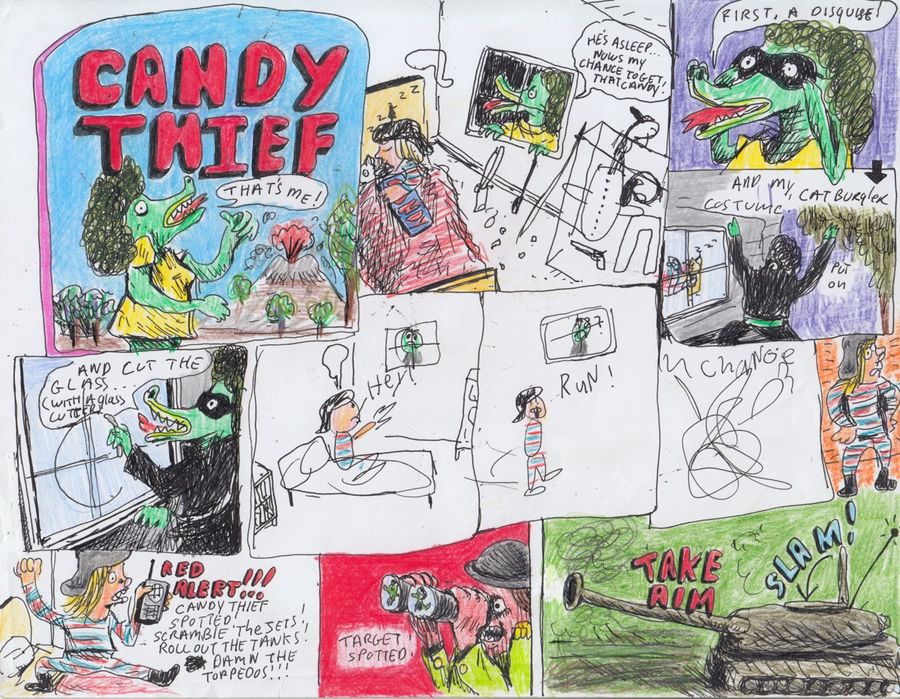 CANDY
THIEF
THAT'S ME!
Z Z Z
HE'S ASLEEP...
NOWS MY
CHANCE TO GET
THAT CANDY!
FIRST, A DISGUISE!
AND MY CAT BURGLER
COSTUME
PUT
ON
AND CUT THE
GLASS...
(WITH A GLASS
CUTTER)
HEY!
RUN!
CHANGE
RED
ALERT!!!
CANDY THIEF
SPOTTED!
SCRAMBLE THE JETS!
ROLL OUT THE TANKS!
DAMN THE
TORPEDOS!!!
TARGET
SPOTTED.
TAKE
AIM
SLAM!